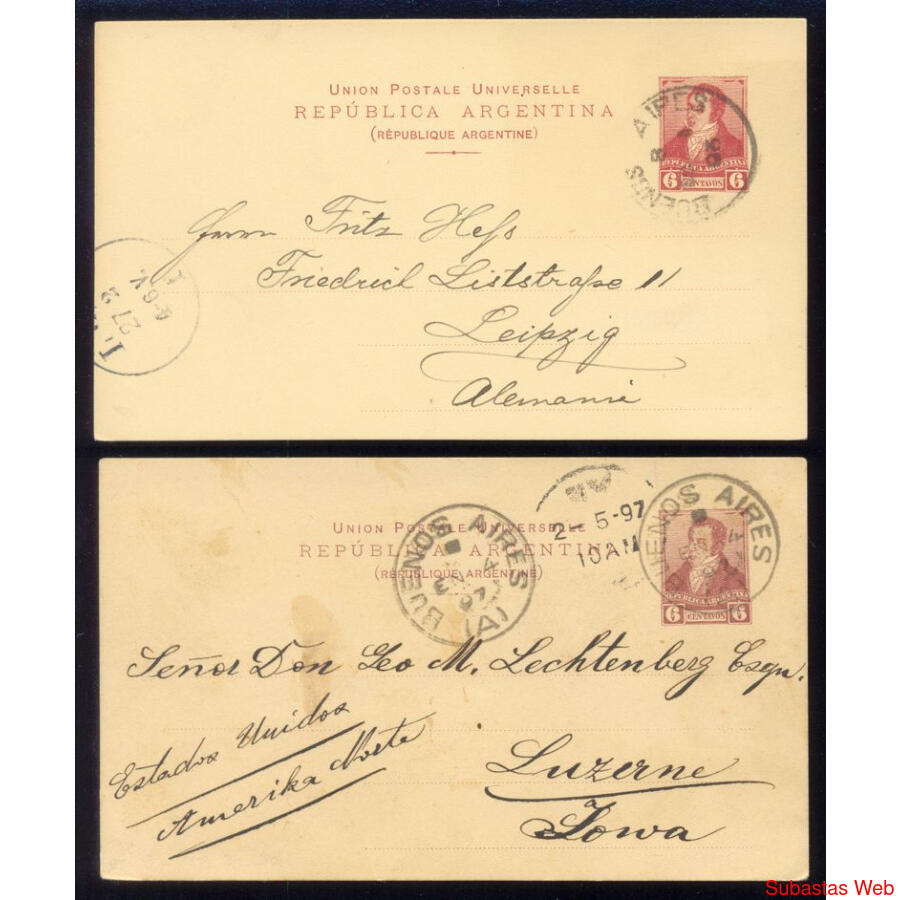 UNION POSTALE UNIVERSELLE
REPÚBLICA ARGENTINA
(RÉPUBLIQUE ARGENTINE)
BUENOS AIRES
REPUBLICA ARGENTINA
6 CENTAVOS 6
Herrn Fritz Heß
Friedrich Liststraße 11
Leipzig
Alemania
27
UNION POSTALE UNIVERSELLE
REPÚBLICA ARGENTINA
(RÉPUBLIQUE ARGENTINE)
BUENOS AIRES
EN 4
97
(A)
2-5-97
10AM
BUENOS AIRES
REPUBLICA ARGENTINA
6 CENTAVOS 6
Señor Don Geo M. Lechtenberg Esqu.
Estados Unidos
Amerika Norte
Luzerne
Iowa
Subastas Web